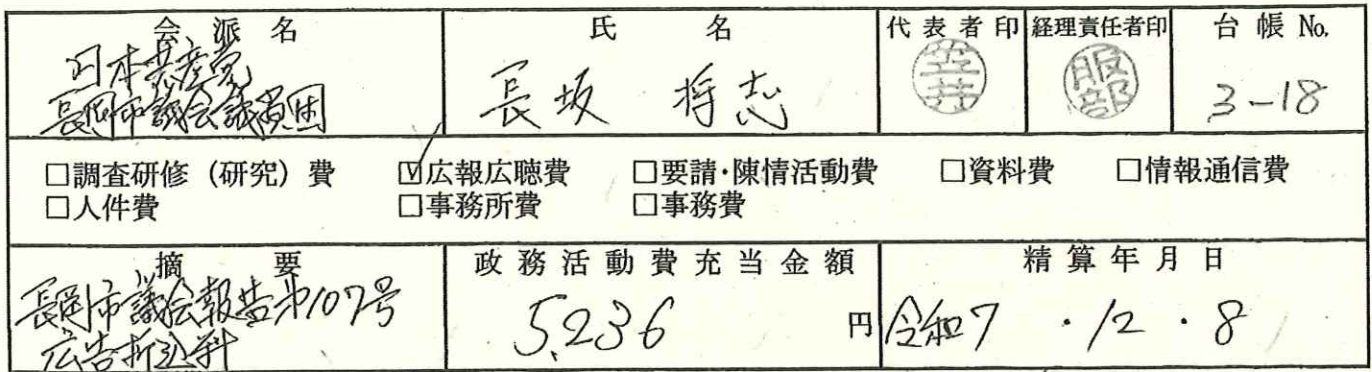 会派名 氏名 代表者印 経理責任者印 台帳No.
日本共産党
長岡市議会議員団
長坂 将志
笠井
服部
3-18
□調査研修（研究）費 ☑広報広聴費 □要請・陳情活動費 □資料費 □情報通信費
□人件費 □事務所費 □事務費
摘要 政務活動費充当金額 精算年月日
長岡市議会報告第107号
広告折込料
5,236 円
令和7・12・8